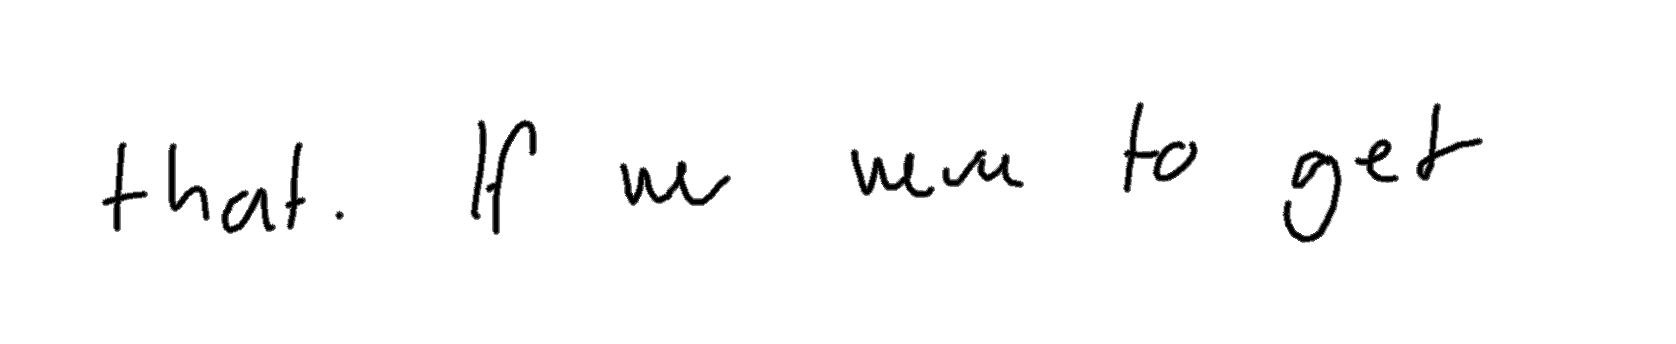 that. If we were to get